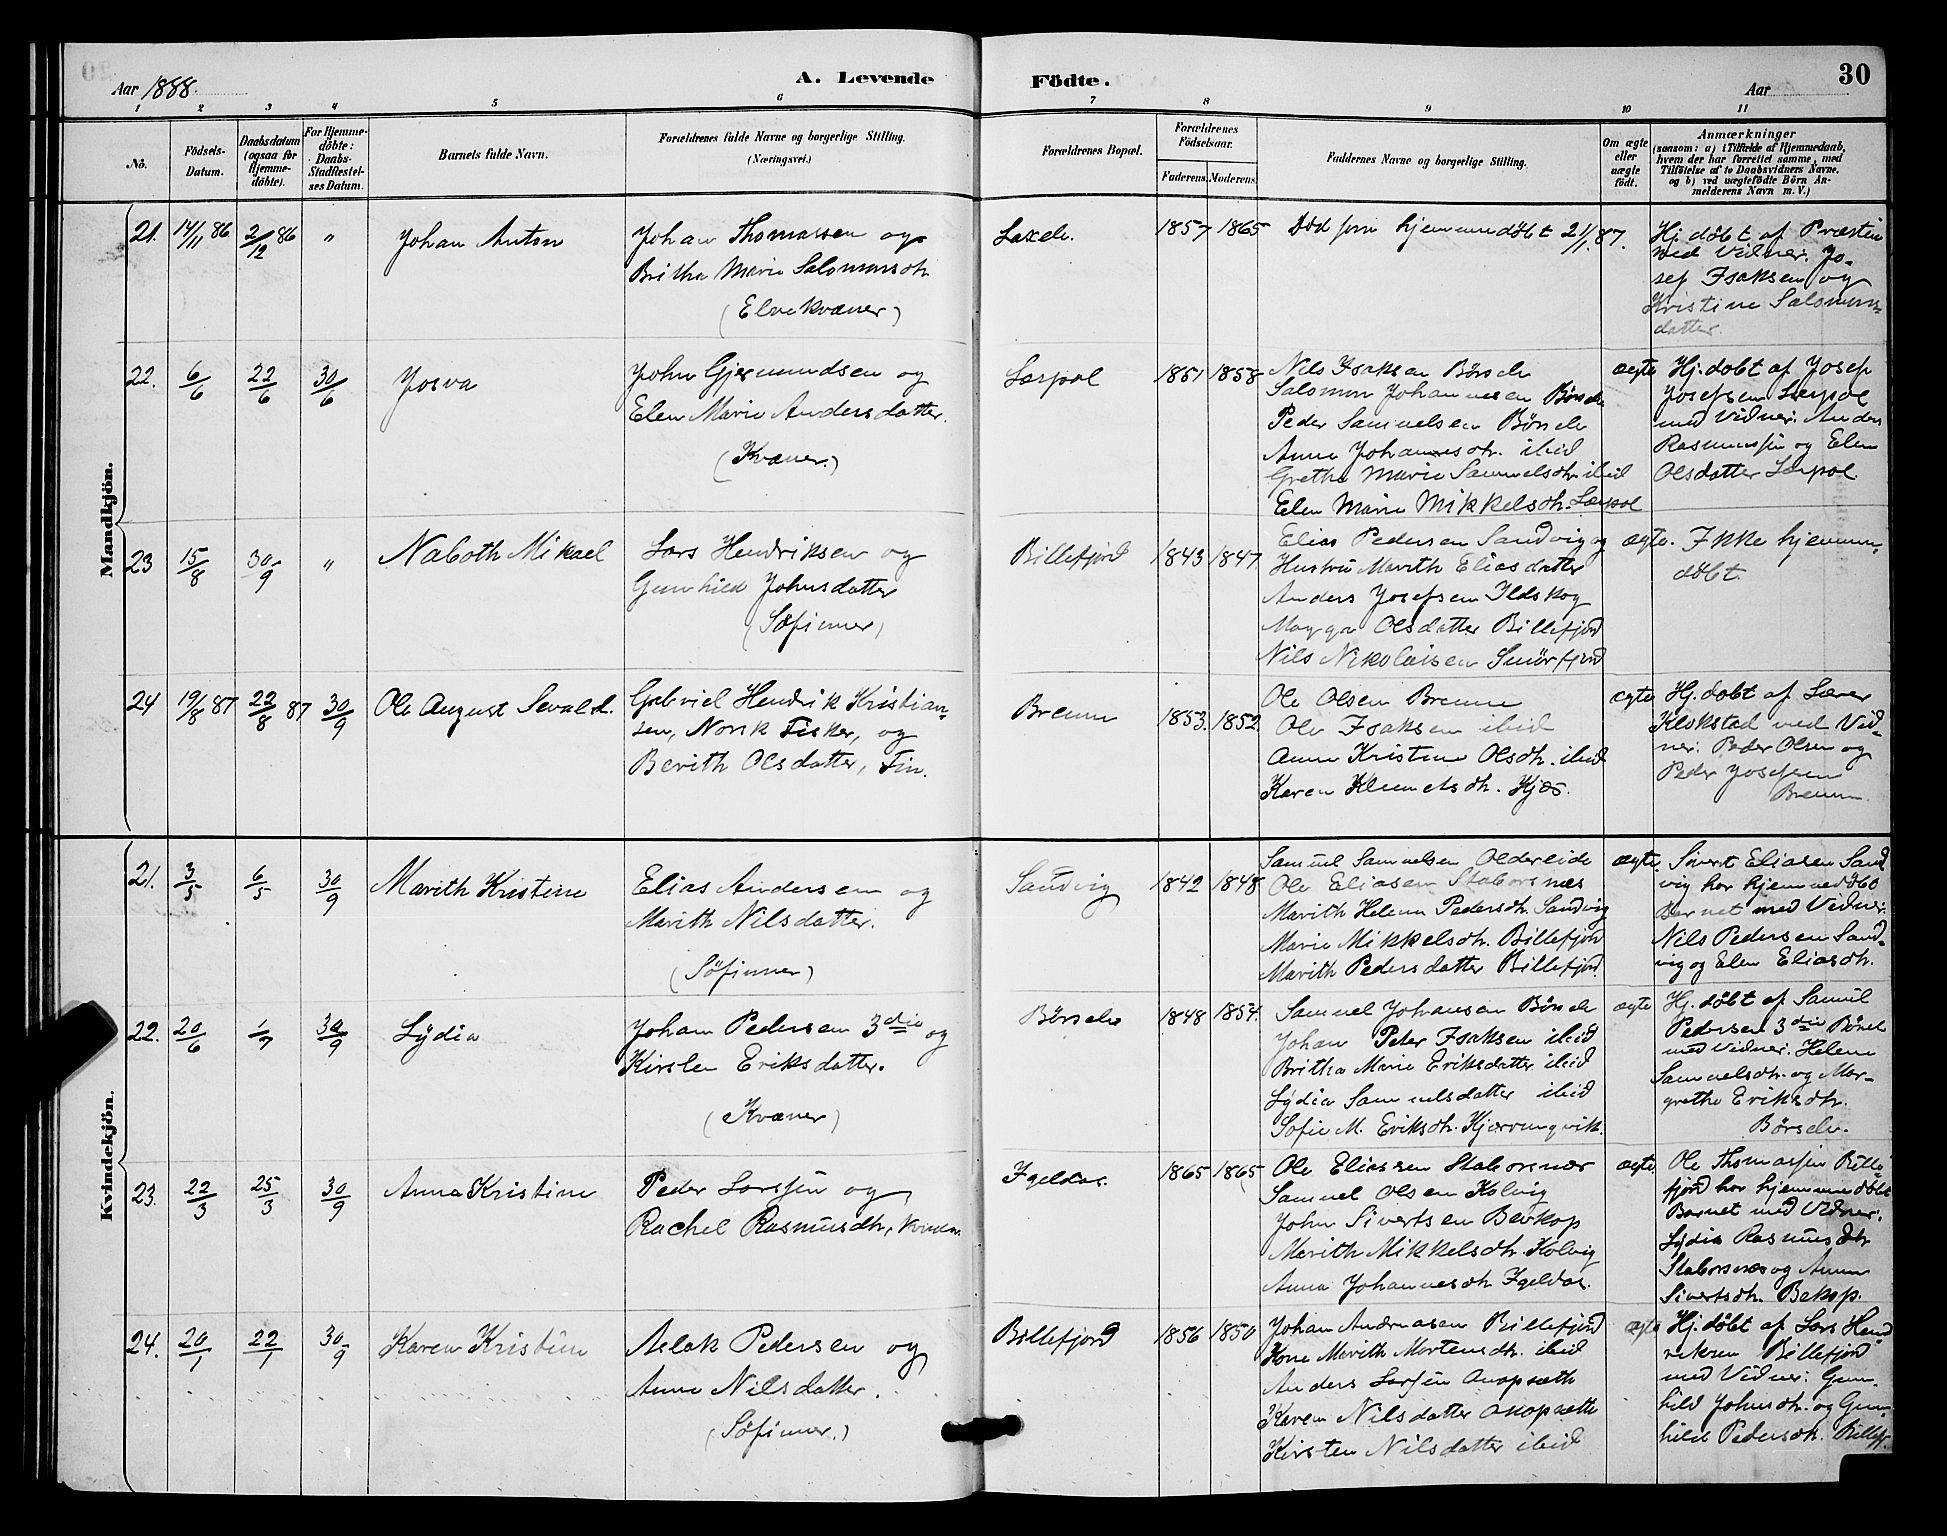 Aar 1888.
A. Levende Födte.
Aar
30
1 2 3 4 5 6 7 8 9 10 11
No.
Födsels-Datum.
Daabsdatum (ogsaa for Hjemmedöbte).
For Hjemmedöbte: Daabs-Stadfæstelses Datum.
Barnets fulde Navn.
Forældrenes fulde Navne og borgerlige Stilling. (Næringsvei.)
Forældrenes Bopæl.
Forældrenes Födselsaar.
Faderens. Moderens.
Faddernes Navne og borgerlige Stilling.
Om ægte eller uægte födt.
Anmærkninger
(saasom: a) i Tilfælde af Hjemmedaab, hvem der har forrettet samme, med Tilföielse af to Daabsvidners Navne, og b) ved uægtefödte Börn Anmelderens Navn m. V.)
Mandkjön.
21. 14/11 86 2/12 86 " Johan Anton
Johan Thomassen og
Britha Marie Salomonsdtr
(Elvekvæner)
1857 1865
Död som hjemmedöbt 2/1 87.
Hj. döbt af Præsten
med Vidner: Jo-
sef Isaksen og
Kristine Salomons-
datter.
22. 6/6 22/6 30/6 Josva
John Gjermundsen og
Elen Marie Andersdatter.
(Kvæner.)
Læpol 1851 1858
Nils Isaksen Börselv
Salomon Johannesen Börselv
Peder Samuelsen Börselv
Anna Johannesdtr. ibid
Grethe Marie Samuelsdtr. ibid
Elen Marie Mikkelsdtr.
ægte
Hj. döbt af Josef
Josefsen
med Vidner: Anders
Rasmussen og Elen
Olsdatter
23 15/8 30/9 " Naboth Mikael
Lars Hendriksen og
Gunhild Johnsdatter
(Søfinner)
Billefjord 1843 1847
Elias Pedersen Sandvig og
Hustru Marith Eliasdatter
Anders Josefsen Ildskog
Magga Olsdatter Billefjord
Nils Nikolaisen Smörfjord
ægte.
Ikke hjemme-
döbt.
24 19/8 87 22/8 87 30/9 Ole August Sevald.
Gabriel Hendrik Kristian-
sen, Norsk Fisker, og
Berith Olsdatter, Fin.
Brenna 1853. 1852.
Ole Olsen Brenna
Ole Isaksen ibid
Anne Kristine Olsdtr. ibid
Karen Klemetsdtr. Kjæs.
ægte
Hj. döbt af Lærer
Klokstad ved Vid-
ner: Peder Olsen og
Peder Josefsen
Brenna.
Kvindekjön.
21. 3/5 6/5 30/9 Marith Kristine
Elias Andersen og
Marith Nilsdatter.
(Söfinner)
Sandvig 1842 1848
Samuel Samuelsen Oldereide
Ole Eliasen Stabursnæs
Marith Helena Pedersdtr. Sandvig
Marie Mikkelsdtr. Billefjord
Marith Pedersdatter Billefjord
ægte.
Sivert Eliasen Sand
vig har hjemmedöbt
Barnet med Vidner:
Nils Pedersen Sand-
vig og Elen Eliasdtr.
22. 20/6 1/7 30/9 Lydia
Johan Pedersen 3die og
Kirsten Eriksdatter.
(Kvæner)
Börselv 1848 1854.
Samuel Johansen Börselv
Johan Peter Isaksen ibid
Britha Marie Eriksdatter ibid
Lydia Samuelsdatter ibid
Sofie M. Eriksdtr.
ægte
Hj. döbt af Samuel
Pedersen 3die Börselv
med Vidner: Helene
Samuelsdtr. og Mar-
grethe Eriksdtr.
Börselv.
23. 22/3 25/3 30/9 Anna Kristine
Peder Larssen og
Rachel Rasmusdtr, Kvæner.
Igeldas. 1865 1865
Ole Eliassen Stabursnæs
Samuel Olsen Kolvig
John Sivertsen Bevkop
Marith Mikkelsdtr. Kolvig
Anna Johannesdtr. Igeldas.
ægte
Ole Thomassen Bille-
fjord har hjemmedöbt
Barnet med Vidner:
Lydia Rasmusdtr
Stabursnæs og Anna
Sivertsdtr. Bekop.
24. 20/1 22/1 30/9 Karen Kristine
Aslak Pedersen og
Anne Nilsdatter.
(Söfinner.)
Billefjord 1856 1850
Johan Andreasen Billefjord
Kone Marith Mortensdtr. ibid
Anders Larsen
Karen Nilsdatter
Kirsten Nilsdatter ibid
ægte
Hj. döbt af Lars Hend
riksen Billefjord
med Vidner: Gun-
hild Johnsdtr. og Gun-
hild Pedersdtr. Billefj.